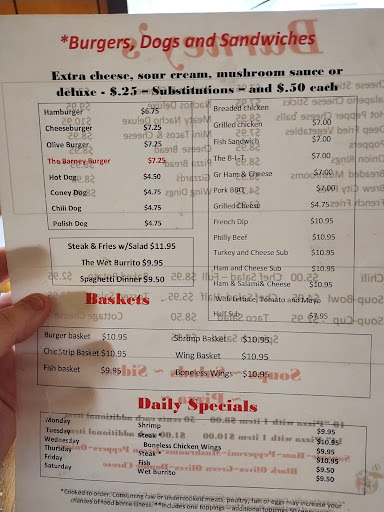 *Burgers, Dogs and Sandwiches
Extra cheese, sour cream, mushroom sauce or
deluxe - $.25 – Substitutions – and $.50 each
Hamburger $6.75
Cheeseburger $7.25
Olive Burger $7.25
The Barney Burger $7.25
Hot Dog $4.50
Coney Dog $4.75
Chili Dog $4.75
Polish Dog $4.75
Breaded chicken
Grilled chicken $7.00
Fish Sandwich $7.00
The B-L-T $7.00
Gr Ham & Cheese $7.00
Pork BBQ $7.00
Grilled Cheese $4.75
French Dip $10.95
Philly Beef $10.95
Turkey and Cheese Sub $10.95
Ham and Cheese Sub $10.95
Ham & Salami & Cheese $10.95
With Lettuce, Tomato and Mayo
Half Sub $7.95
Steak & Fries w/Salad $11.95
The Wet Burrito $9.95
Spaghetti Dinner $9.50
Baskets
Burger basket $10.95
Chic Strip Basket $10.95
Fish basket $9.95
Shrimp Basket $10.95
Wing Basket $10.95
Boneless Wings $10.95
Daily Specials
Monday Shrimp $9.95
Tuesday Steak * $10.95
Wednesday Boneless Chicken Wings $9.95
Thursday Steak * $10.95
Friday Fish $9.50
Saturday Wet Burrito $9.50
*Cooked to order. Consuming raw or undercooked meats, poultry, fish or eggs may increase your
chances of food borne illness. **Includes one toppings – additional toppings 50 cents